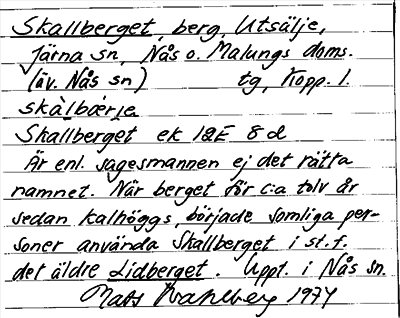 Skallberget, berg, Utsälje,
Järna sn, Nås o. Malungs doms.
(äv. Nås sn) tg, Kopp. l.
skàlbærje
Skallberget ek 12E 8d
Är enl. sagesmannen ej det rätta
namnet. När berget för c:a tolv år
sedan kalhöggs, började somliga per-
soner använda Skallberget i st. f.
det äldre Lidberget. Uppt. i Nås sn.
Mats Wahlberg 1974